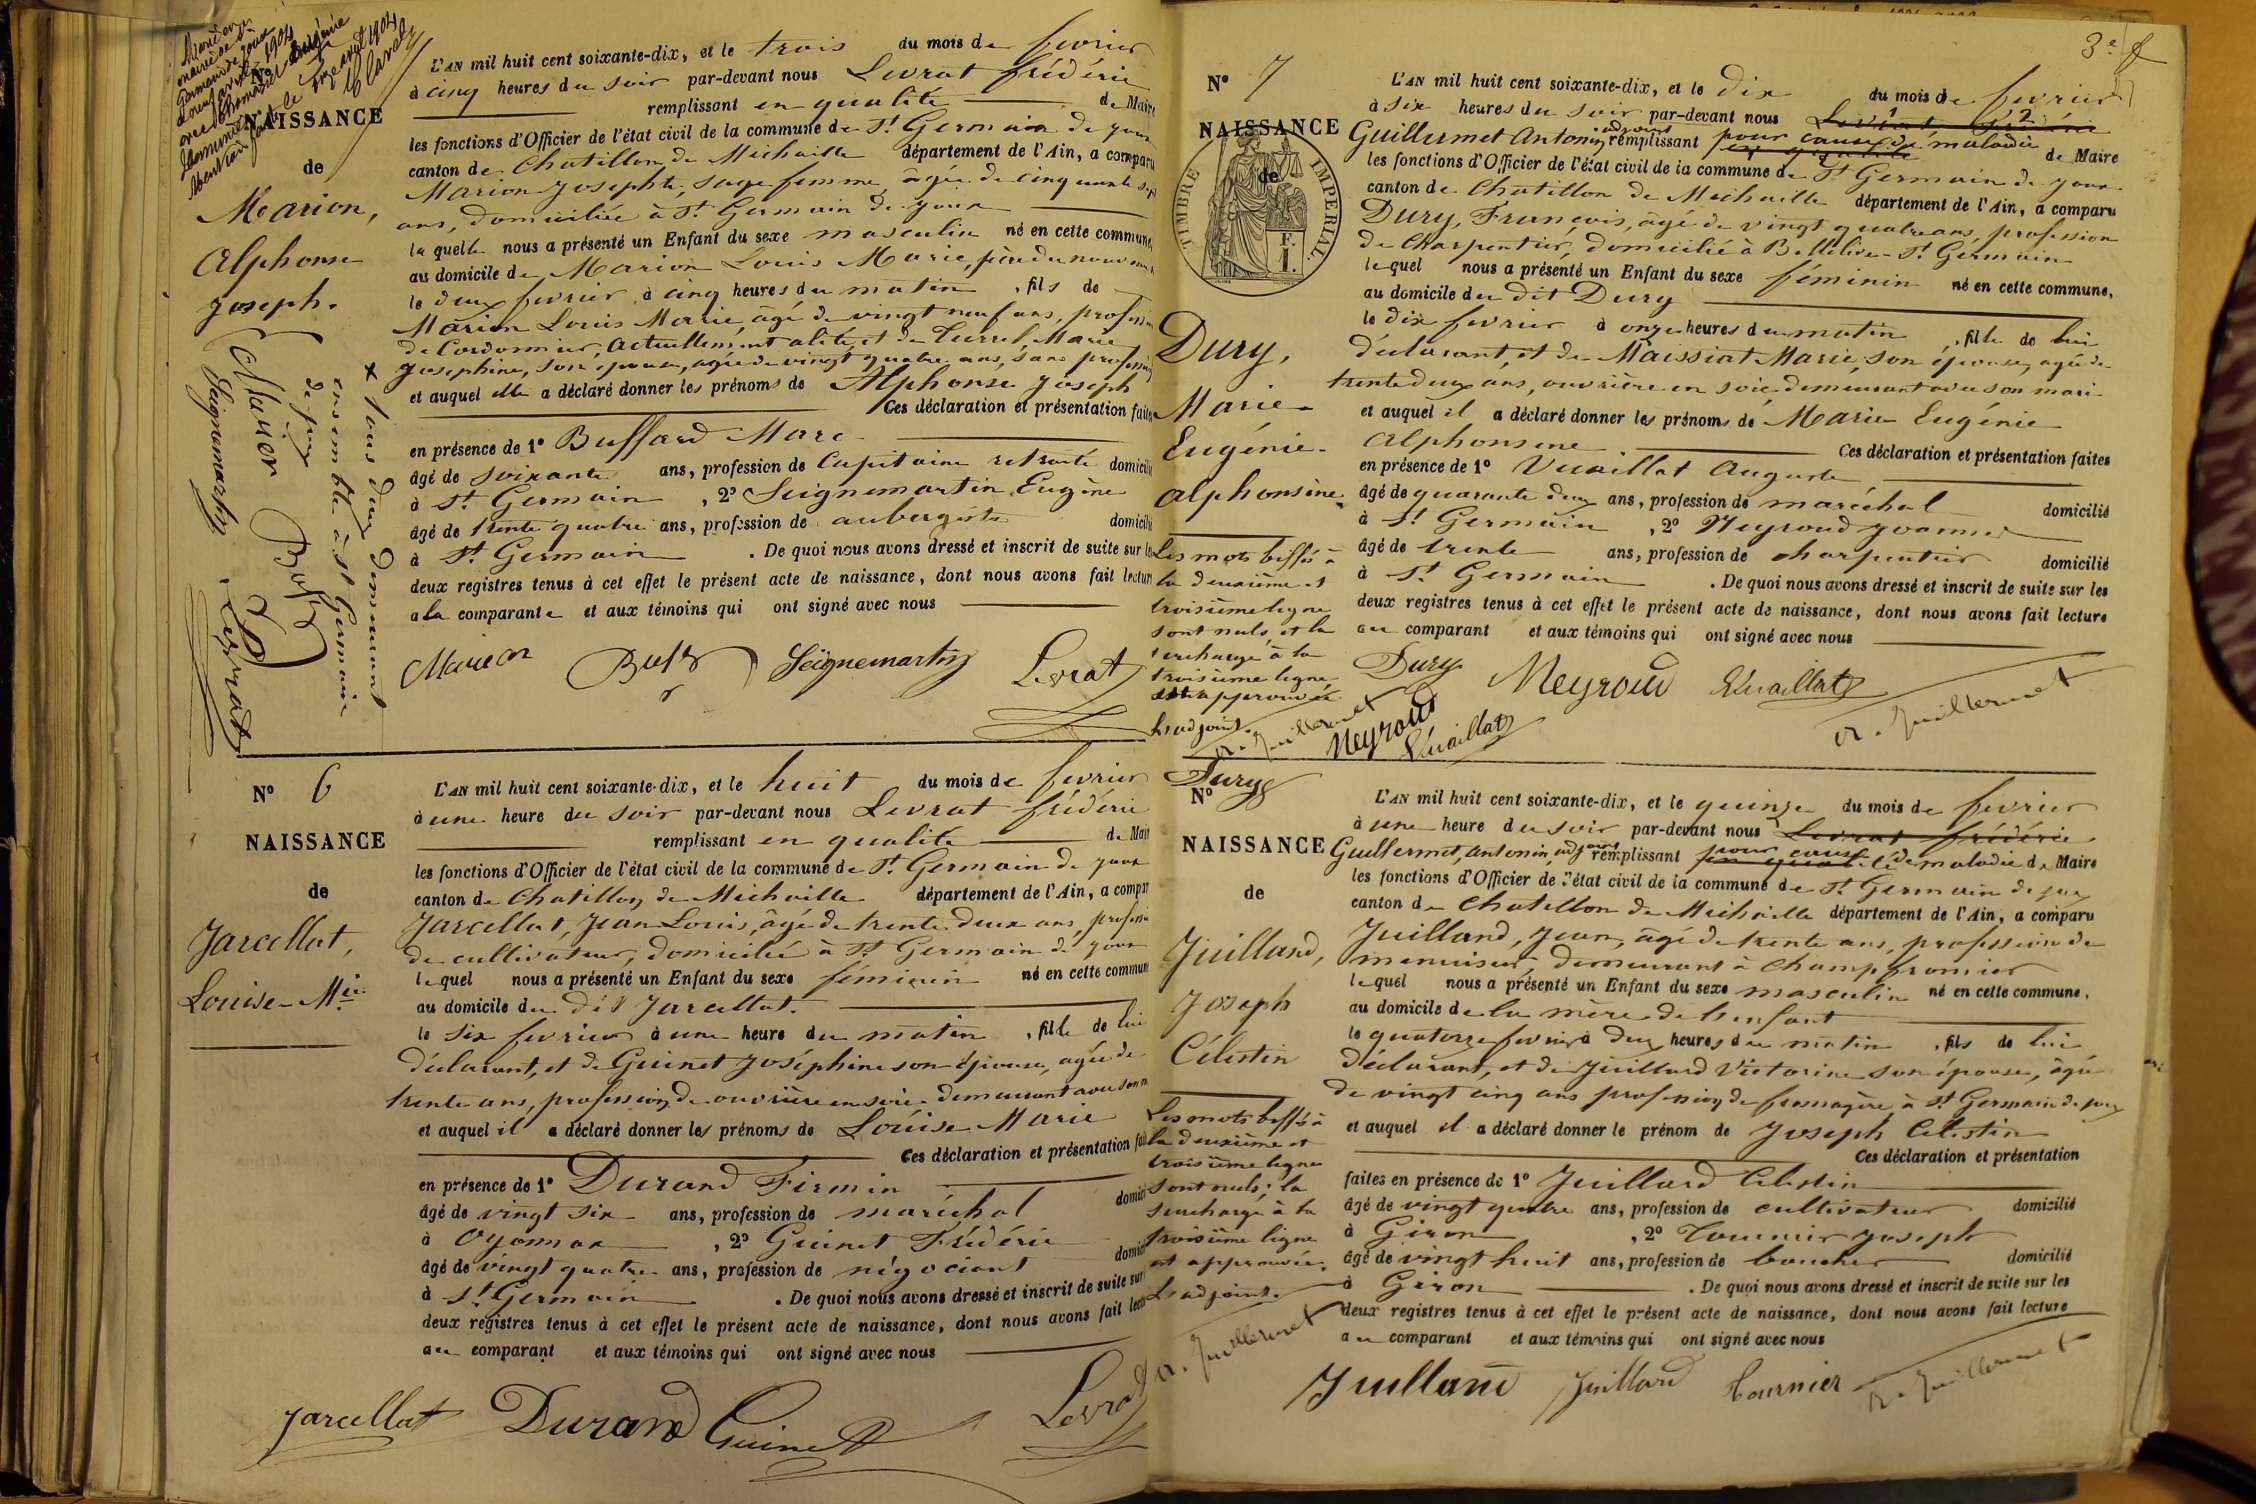 Nº
NAISSANCE
de
Marion,
Alphonse
Joseph.
L'AN mil huit cent soixante-dix, et le trois du mois de fevrier
à cinq heures du soir par-devant nous Levrat frédéric
remplissant en qualité de Maire
les fonctions d'Officier de l'état civil de la commune de St Germain de joux
canton de Chatillon de Michaille département de l'Ain, a comparu
Marion Josephte, sage femme, âgée de cinquante sept
ans, domiciliée à St Germain de joux
la quelle nous a présenté un Enfant du sexe masculin né en cette commune,
au domicile de Marion Louis Marie, père du nouveau
le deux fevrier à cinq heures du matin, fils de
Marion Louis Marie, âgé de vingt neuf ans, profession
de Cordonnier, actuellement alité, et de Marie
Josephine, son épouse, agée de vingt quatre ans, sans profession
et auquel elle a déclaré donner les prénoms de Alphonse Joseph
Ces déclaration et présentation faites
en présence de 1º Buffard Marc
âgé de soixante ans, profession de Capitaine retraité domicilié
à St Germain, 2º Seignemartin Eugène
âgé de trente quatre ans, profession de aubergiste domicilié
à St Germain. De quoi nous avons dressé et inscrit de suite sur les
deux registres tenus à cet effet le présent acte de naissance, dont nous avons fait lecture
a la comparante et aux témoins qui ont signé avec nous
Marion Seignemartin Levrat
x tous deux demeurant
ensemble à St Germain
de joux
Marion
Seignemartin Levrat
Nº 6
NAISSANCE
de
Jarcellat,
Louise-Mie
L'AN mil huit cent soixante-dix, et le huit du mois de fevrier
à une heure du soir par-devant nous Levrat frédéric
remplissant en qualité de Maire
les fonctions d'Officier de l'état civil de la commune de St Germain de joux
canton de Chatillon de Michaille département de l'Ain, a comparu
Jarcellat, Jean Louis, âgé de trente deux ans, profession
de cultivateur, domicilié à St Germain de joux
lequel nous a présenté un Enfant du sexe féminin né en cette commune
au domicile du dit Jarcellat.
le six fevrier à une heure du matin, fille de lui
déclarant, et de Guinet Joséphine son épouse, agée de
trente ans, profession de ouvrière en soie demeurant avec son mari
et auquel il a déclaré donner les prénoms de Louise Marie
Ces déclaration et présentation faites
en présence de 1º Durand Firmin
âgé de vingt six ans, profession de maréchal domicilié
à Oyonnax, 2º Guinet Frédéric
âgé de vingt quatre ans, profession de négociant domicilié
à St Germain. De quoi nous avons dressé et inscrit de suite sur
deux registres tenus à cet effet le présent acte de naissance, dont nous avons fait lecture
au comparant et aux témoins qui ont signé avec nous
Jarcellat Durand Guinet Levrat
3e f
Nº 7
NAISSANCE
de
TIMBRE IMPERIAL.
Dury,
Marie-
Eugénie-
Alphonsine
L'AN mil huit cent soixante-dix, et le dix du mois de fevrier
à six heures du soir par-devant nous Levrat frédéric
Guillermet Antonin, adjoint remplissant pour cause de maladie de Maire
les fonctions d'Officier de l'état civil de la commune de St Germain de joux
canton de Chatillon de Michaille département de l'Ain, a comparu
Dury, François, âgé de vingt quatre ans, profession
de Charpentier, domicilié à Bellelive-St Germain
lequel nous a présenté un Enfant du sexe féminin né en cette commune,
au domicile du dit Dury
le dix fevrier à onze heures du matin, fille de lui
déclarant, et de Maissiat Marie, son épouse, agée de
trente deux ans, ouvrière en soie, demeurant avec son mari
et auquel il a déclaré donner les prénoms de Marie Eugénie
Alphonsine Ces déclaration et présentation faites
en présence de 1º Vuaillat Auguste
âgé de quarante deux ans, profession de maréchal domicilié
à St Germain, 2º Meyroud Joanner
âgé de trente ans, profession de charpentier domicilié
à St Germain. De quoi nous avons dressé et inscrit de suite sur les
deux registres tenus à cet effet le présent acte de naissance, dont nous avons fait lecture
au comparant et aux témoins qui ont signé avec nous
Dury Meyroud Vuaillat A. Guillermet
Les mots biffés à
la deuxième et
troisième ligne
sont nuls, et la
surcharge à la
troisième ligne
est approuvée
L'adjoint.
A. Guillermet Meyroud Vuaillat
Dury
Nº
NAISSANCE
de
Juilland,
Joseph
Célestin
L'AN mil huit cent soixante-dix, et le quinze du mois de fevrier
à une heure du soir par-devant nous Levrat frédéric
Guillermet, Antonin, adjoint remplissant pour cause de maladie de Maire
les fonctions d'Officier de l'état civil de la commune de St Germain de joux
canton de Chatillon de Michaille département de l'Ain, a comparu
Juilland, Jean, âgé de trente ans, profession de
menuisier, demeurant à Champfromier
lequel nous a présenté un Enfant du sexe masculin né en cette commune.
au domicile de la mère de l'enfant
le quatorze fevrier à deux heures du matin, fils de lui
déclarant, et de Juilland Victorine son épouse, âgé
de vingt cinq ans profession de fromagère à St Germain de joux
et auquel il a déclaré donner le prénom de Joseph Célestin
Ces déclaration et présentation
faites en présence de 1º Juilland Célestin
âgé de vingt quatre ans, profession de cultivateur domicilié
à Giron, 2º Tournier Joseph
âgé de vingt huit ans, profession de boucher domicilié
à Giron. De quoi nous avons dressé et inscrit de suite sur les
deux registres tenus à cet effet le présent acte de naissance, dont nous avons fait lecture
au comparant et aux témoins qui ont signé avec nous
Juilland Juilland Tournier A. Guillermet
Les mots biffés à
la deuxième et
troisième ligne
sont nuls; la
surcharge à la
troisième ligne
est approuvée.
L'adjoint.
A. Guillermet